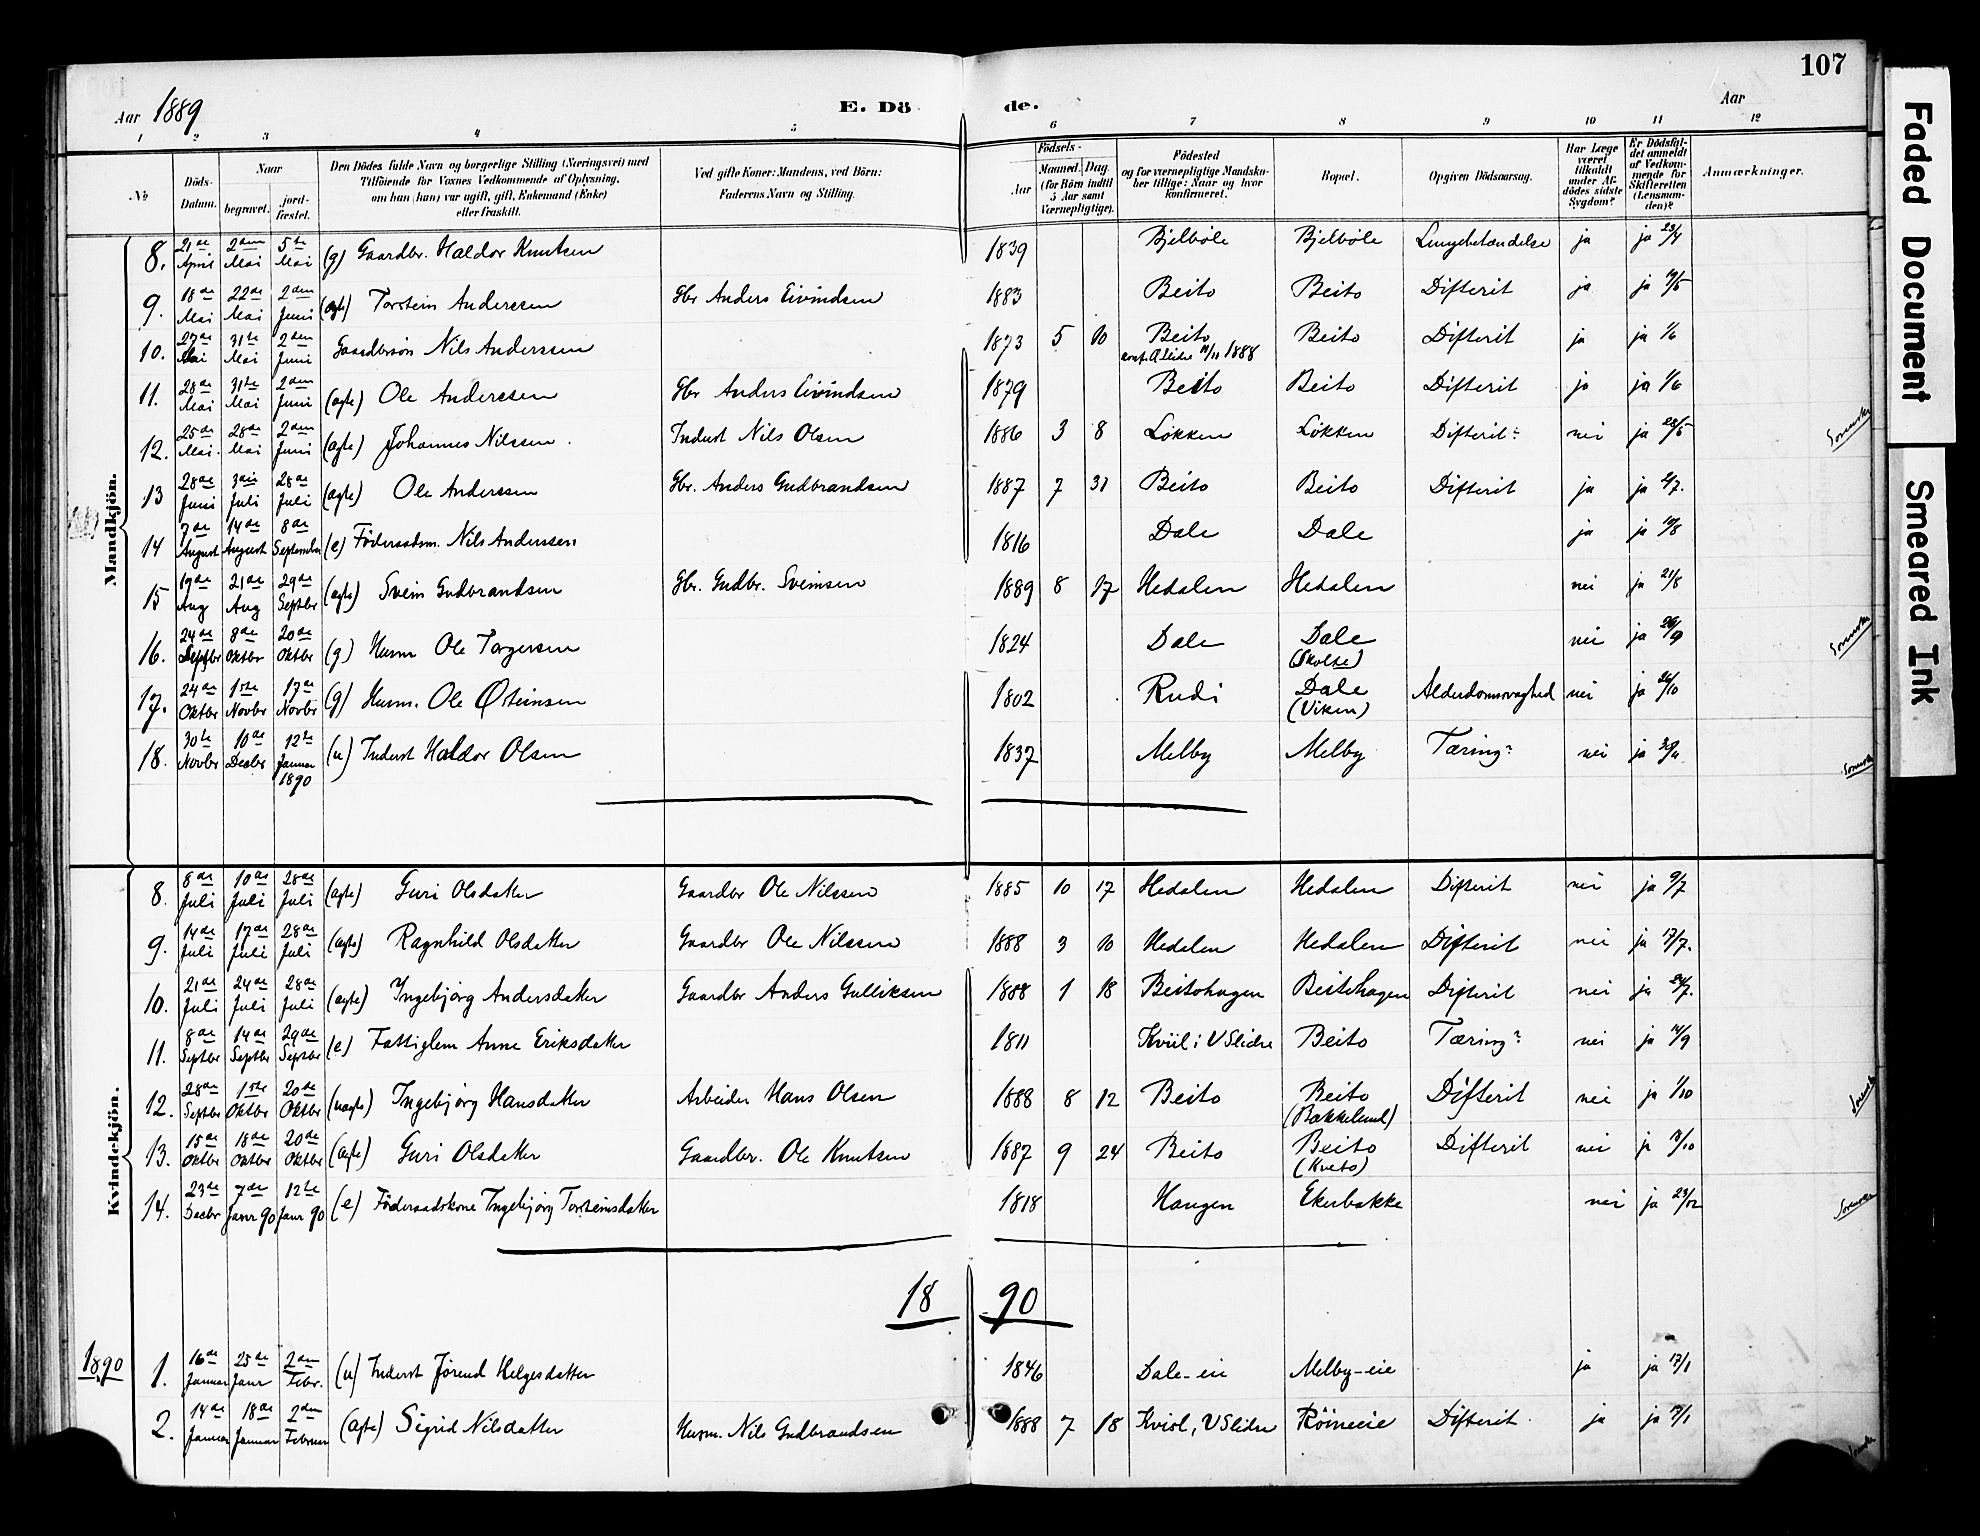 107
Aar 1889
E. Döde.
Aar
1 2 3 4 5 6 7 8 9 10 11 12
No
Döds-Datum.
Naar
begravet.
jord-fæstet.
Den Dödes fulde Navn og borgerlige Stilling (Næringsvei) med
Tilföiende for Voxnes Vedkommende af Oplysning,
om han (hun) var ugift, gift, Enkemand (Enke)
eller fraskilt.
Ved gifte Koner: Mandens, ved Börn:
Faderens Navn og Stilling.
Födsels-
Aar
Maaned.
Dag.
(for Börn indtil
5 Aar samt
Værnepligtige).
Födested
og for værnepligtige Mandskaber tillige: Naar og hvor
konfirmeret.
Bopæl.
Opgiven Dödsaarsag.
Har Læge
været
tilkaldt
under Afdödes sidste
Sygdom?
Er Dödsfaldet anmeldt
af Vedkommende for
Skifteretten
(Lensmanden)?
Anmærkninger.
Mandkjön.
8. 21de April 2den Mai 5te Mai (g) Gaardbr. Haldor Knutsen 1839 Bjelböle Bjelböle Lungebetændelse ja ja 23/4
9. 18de Mai 22de Mai 2den Juni (ægte) Torstein Anderssen Gbr Anders Eivindsen 1883 Beito Beito Difterit ja ja 19/5
10. 27de Mai 31te Mai 2den Juni Gaardbrsön Nils Anderssen 1873 5 10 Beito Beito Difterit ja ja 1/6
conf. Ø Slidre 11/11 1888
11. 28de Mai 31te Mai 2den Juni (ægte) Ole Anderssen Gbr Anders Eivindsen 1879 Beito Beito Difterit ja ja 1/6
12. 25de Mai. 28de Mai 2den Juni (ægte) Johannes Nilssen. Inderst Nils Olsen 1886 3 8 Løkken Løkken Difterit? nei ja 28/5
13 28de Juni 3die Juli 28de Juli (ægte) Ole Anderssen Gbr. Anders Gudbrandsen 1887 7 31 Beito Beito Difterit ja ja 2/7.
14 7de August 14de August 8de September (e) Föderaadsm. Nils Anderssen 1816 Dale Dale ja ja 10/8
15 19de Aug 21de Aug 29de Septbr (ægte) Svein Gudbrandsen Gbr. Gudbr. Sveinsen 1889 8 17 Hedalen Hedalen nei ja 21/8
16. 24de Septbr 8de Oktbr 20de Oktbr (g) Husm Ole Torgersen 1824 Dale Dale nei ja 28/9
17. 24de Oktbr 1ste Novbr 17de Novbr (g) Husm. Ole Østeinsen 1802 Rudi Dale (Viken) Alderdomssvaghed nei ja 26/10
18. 30te Novbr 10de Decbr 12te Januar 1890 (u) Inderst Haldor Olsen 1837 Melby Melby Tæring? nei ja 30/11
Kvindekjön.
8. 8de Juli 10de Juli 28de Juli (ægte) Guri Olsdatter Gaardbr Ole Nilssen 1885 10 17 Hedalen Hedalen Difterit nei ja 9/7
9. 14de Juli 17de Juli 28de Juli (ægte) Ragnhild Olsdatter Gaardbr Ole Nilssen 1888 3 10 Hedalen Hedalen Difterit nei ja 17/7.
10. 21de Juli 24de Juli 28de Juli (ægte) Ingebjörg Andersdatter Gaardbr Anders Gulliksen 1888 1 18 Beitohagen Beitohagen Difterit nei ja 24/7.
11. 8de Septbr 14de Septbr 29de Septbr (e) Fattiglem Anne Eriksdatter 1811 Kviil i V Slidre Beito Tæring? nei ja 14/9
12. 28de Septbr 1ste Oktbr 20de Oktbr (uægte) Ingebjörg Hansdatter Arbeider Hans Olsen 1888 8 12 Beito Beito (Bakkelund) Difterit nei ja 1/10
13. 15de Oktbr 18de Oktbr 20de Oktbr (ægte) Guri Olsdatter Gaardbr. Ole Knutsen 1887 9 24 Beito Beito Difterit nei ja 18/10
14. 23de Decbr 7de Janr 90 12te Janr 90 (e) Föderaadskone Ingebjörg Torsteinsdatter 1818 Haugen Ekerbakke nei ja 23/12
1890
1890
1. 16de Januar 25de Janr 2den Febr. (u) Inderst Jörund Helgesdatter 1846 Dale-eie Melby-eie ja ja 17/1
2. 14de Januar 18de Januar 2den Februar (ægte) Sigrid Nilsdatter Husm. Nils Gudbrandsen 1888 7 18 Kviol, V Slidre Röineeie Difterit. ja ja 17/1
Faded Document
Smeared Ink